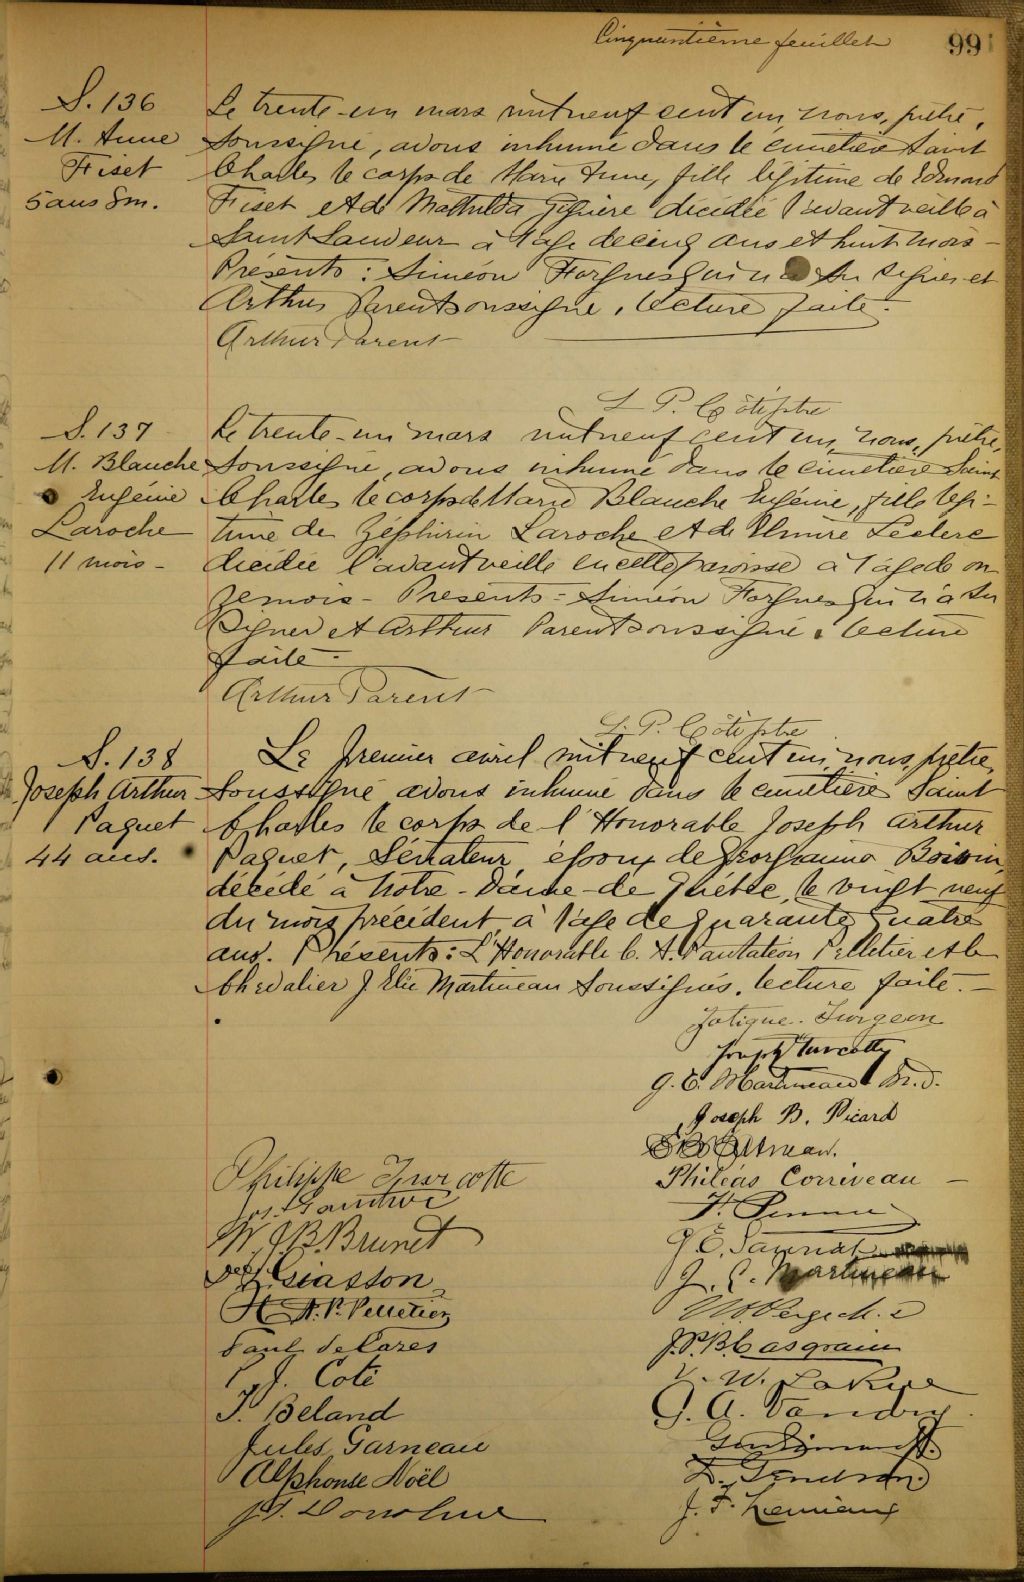 Cinquantième feuillet
99
S. 136
M. Anne
Fiset
5 ans 8 m.
Le trente-un mars mil neuf cent un, nous, prêtre,
soussigné, avons inhumé dans le cimetière Saint
Charles le corps de Marie Anne, fille légitime de Edmond
Fiset et de Mathilda Giguère décédée l'avant veille à
Saint Sauveur à l'age de cinq ans et huit mois -
Présents : Siméon Forgues qui n'a su signer et
Arthur Parent soussigné, lecture faite.
Arthur Parent
L. P. Côté ptre
S. 137
M. Blanche
Eugénie
Laroche
11 mois -
Le trente-un mars mil neuf cent un, nous, prêtre,
soussigné, avons inhumé dans le cimetière Saint
Charles le corps de Marie Blanche Eugénie, fille légi-
time de Zéphirin Laroche et de Elmire Leclerc
décédée l'avant veille en cette paroisse à l'age de on
ze mois - Présents = Siméon Forgues qui n'a su
signer et Arthur Parent soussigné, lecture
faite -
Arthur Parent
L. P. Côté ptre
S. 138
Joseph Arthur
Paquet
44 ans.
Le premier avril mil neuf cent un, nous, prêtre,
soussigné avons inhumé dans le cimetière Saint
Charles le corps de l'Honorable Joseph Arthur
Paquet, Sénateur, époux de Georgianna Boivin,
décédé à Notre-Dame-de Québec, le vingt neuf
du mois précédent, à l'age de quarante quatre
ans. Présents : L'Honorable C. A. Pantaléon Pelletier et le
Chevalier J. Elie Martineau soussignés, lecture faite. -
Turgeon
Joseph Turcotte
G. E. Martineau M.D.
Joseph B. Picard
Philippe Turcotte
Philéas Corriveau -
W. J. B. Brunet
Giasson
J. E. Martineau
H A. P. Pelletier
Paul de Cazes
J. P. B. Casgrain
P. J. Coté
V. W. LaRue
J. Beland
G. A. Vandry
Jules Garneau
Alphonse Noël
D. Gendron
J. F. Lemieux